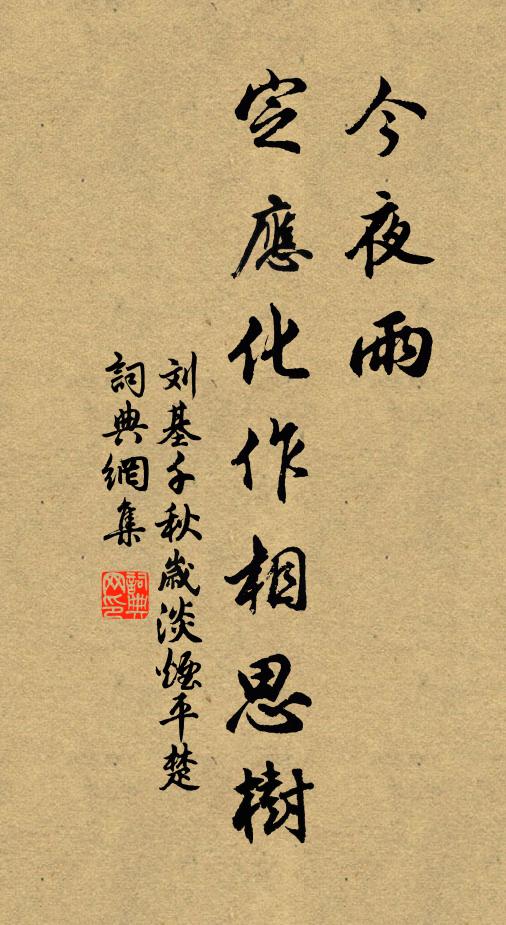 今夜雨
定應化作相思樹
刘基千秋歲淡煙平楚
詞典網集
詞典网印